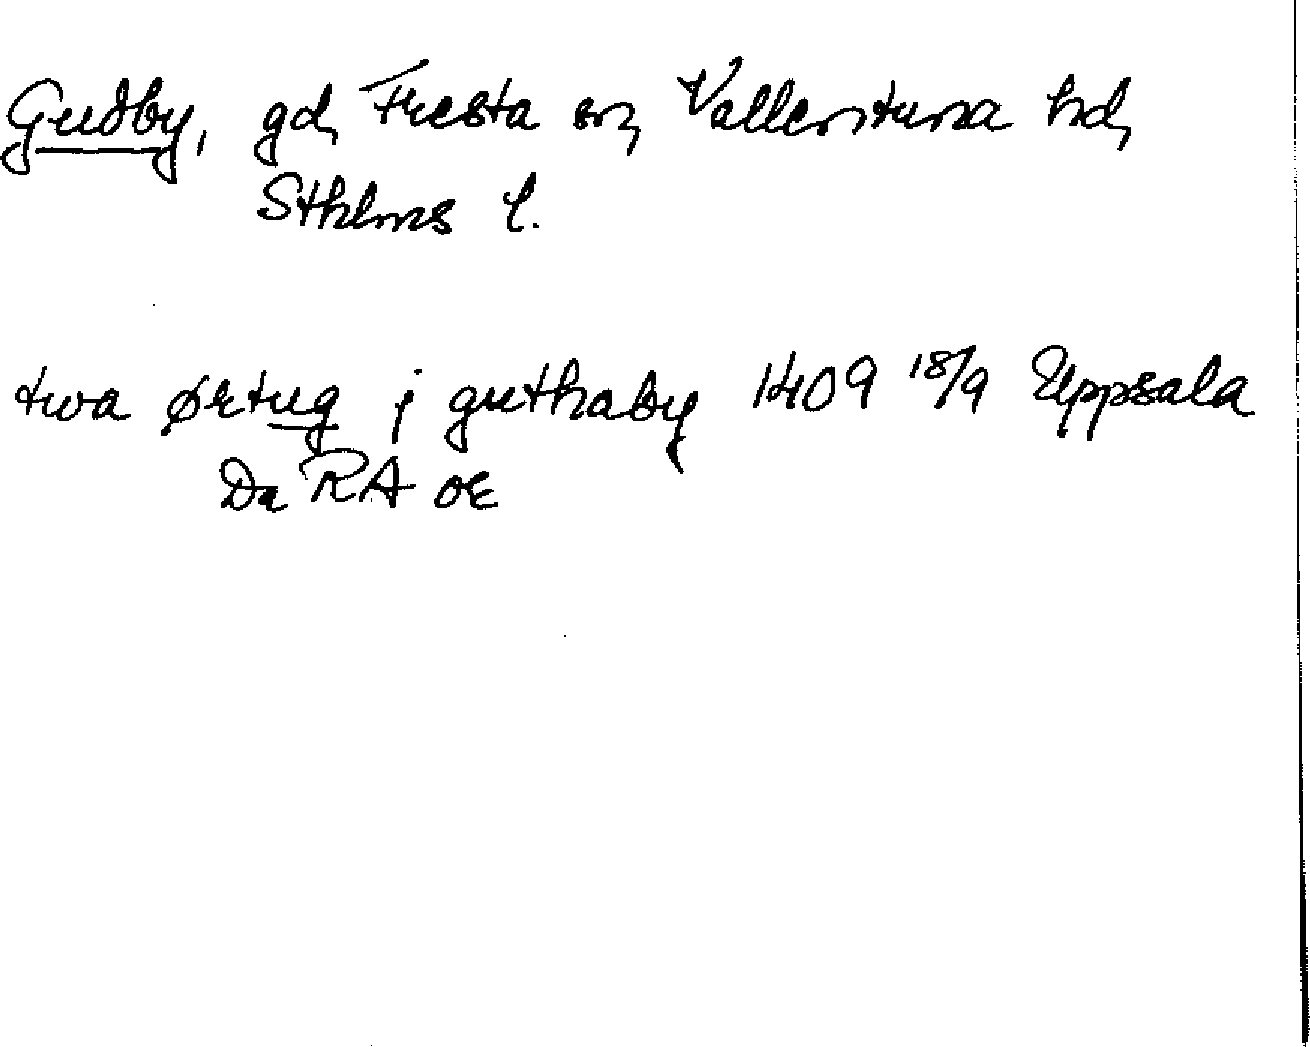 Gudby, gd, Fresta sn, Vallentuna hd,
Sthlms l.
twa ørtug j guthaby 1409 18/9 Uppsala
Da RA oE